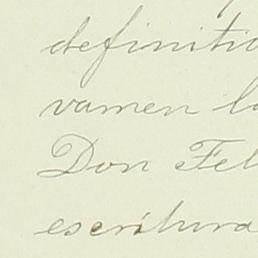 definitio
vamen la
Don Fel
escritura